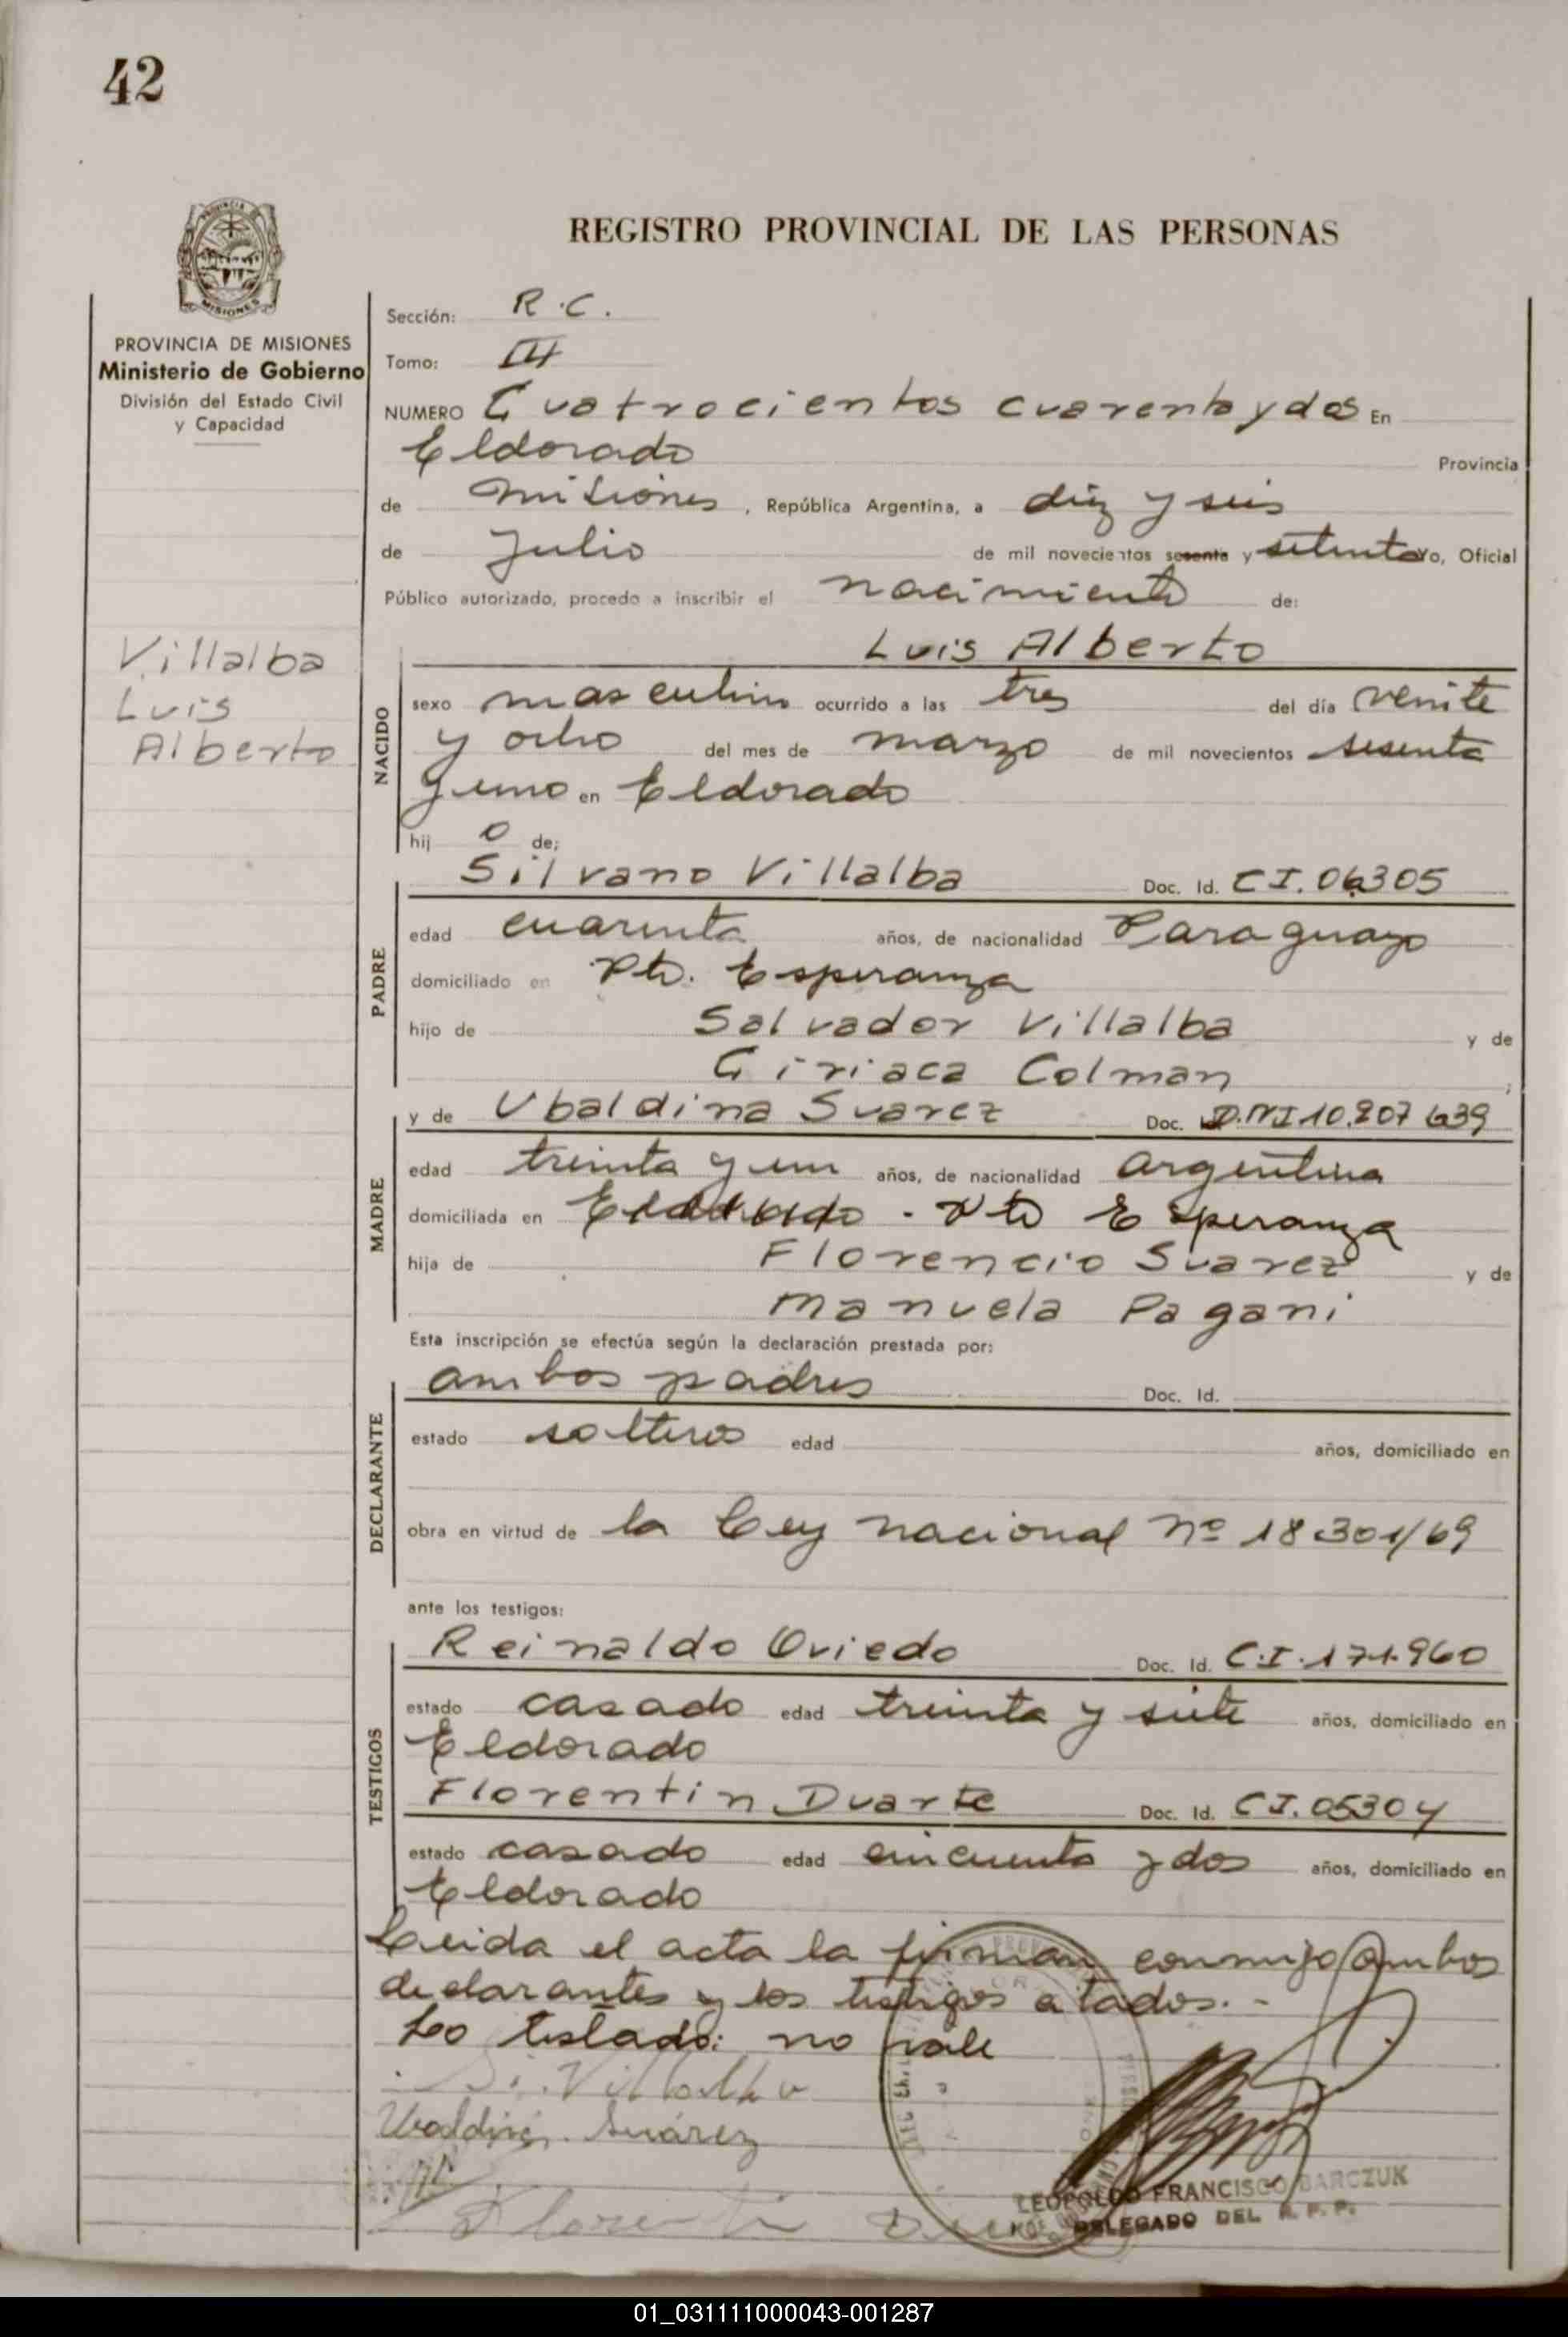 42
REGISTRO PROVINCIAL DE LAS PERSONAS
PROVINCIA DE MISIONES
Ministerio de Gobierno
División del Estado Civil
y Capacidad
Villalba
Luis
Alberto
Sección: R.C.
Tomo: III
NUMERO Cuatrocientos cuarenta y dos En
Eldorado Provincia
de Misiones, República Argentina, a diez y seis
de Julio de mil novecientos sesenta y setenta Yo, Oficial
Público autorizado, procedo a inscribir el nacimiento de:
Luis Alberto
NACIDO
sexo masculino ocurrido a las tres del día veinte
y ocho del mes de marzo de mil novecientos sesenta
y uno en Eldorado
hij o de;
Silvano Villalba Doc. Id. CI. 06305
PADRE
edad cuarenta años, de nacionalidad Paraguayo
domiciliado en Pto. Esperanza
hijo de Salvador Villalba y de
Ciriaca Colman ;
y de Ubaldina Suarez Doc. D.NI 10.807 639
MADRE
edad treinta y un años, de nacionalidad argentina
domiciliada en Eldorado - Pto Esperanza
hija de Florencio Suarez y de
Manuela Pagani
Esta inscripción se efectúa según la declaración prestada por:
ambos padres Doc. Id.
DECLARANTE
estado solteros edad años, domiciliado en
obra en virtud de la Ley nacional Nº 18301/69
ante los testigos:
Reinaldo Oviedo Doc. Id. C.I. 171.960
TESTIGOS
estado casado edad treinta y siete años, domiciliado en
Eldorado
Florentin Duarte Doc. Id. CI. 05304
estado casado edad cincuenta y dos años, domiciliado en
Eldorado
Leida el acta la firman conmigo ambos
declarantes y los testigos citados.-
Lo testado: no vale
Si. Villalba
Ubaldina Suárez
Florentin
LEOPOLDO FRANCISCO BARCZUK
DELEGADO DEL R. P. P.
01_031111000043-001287